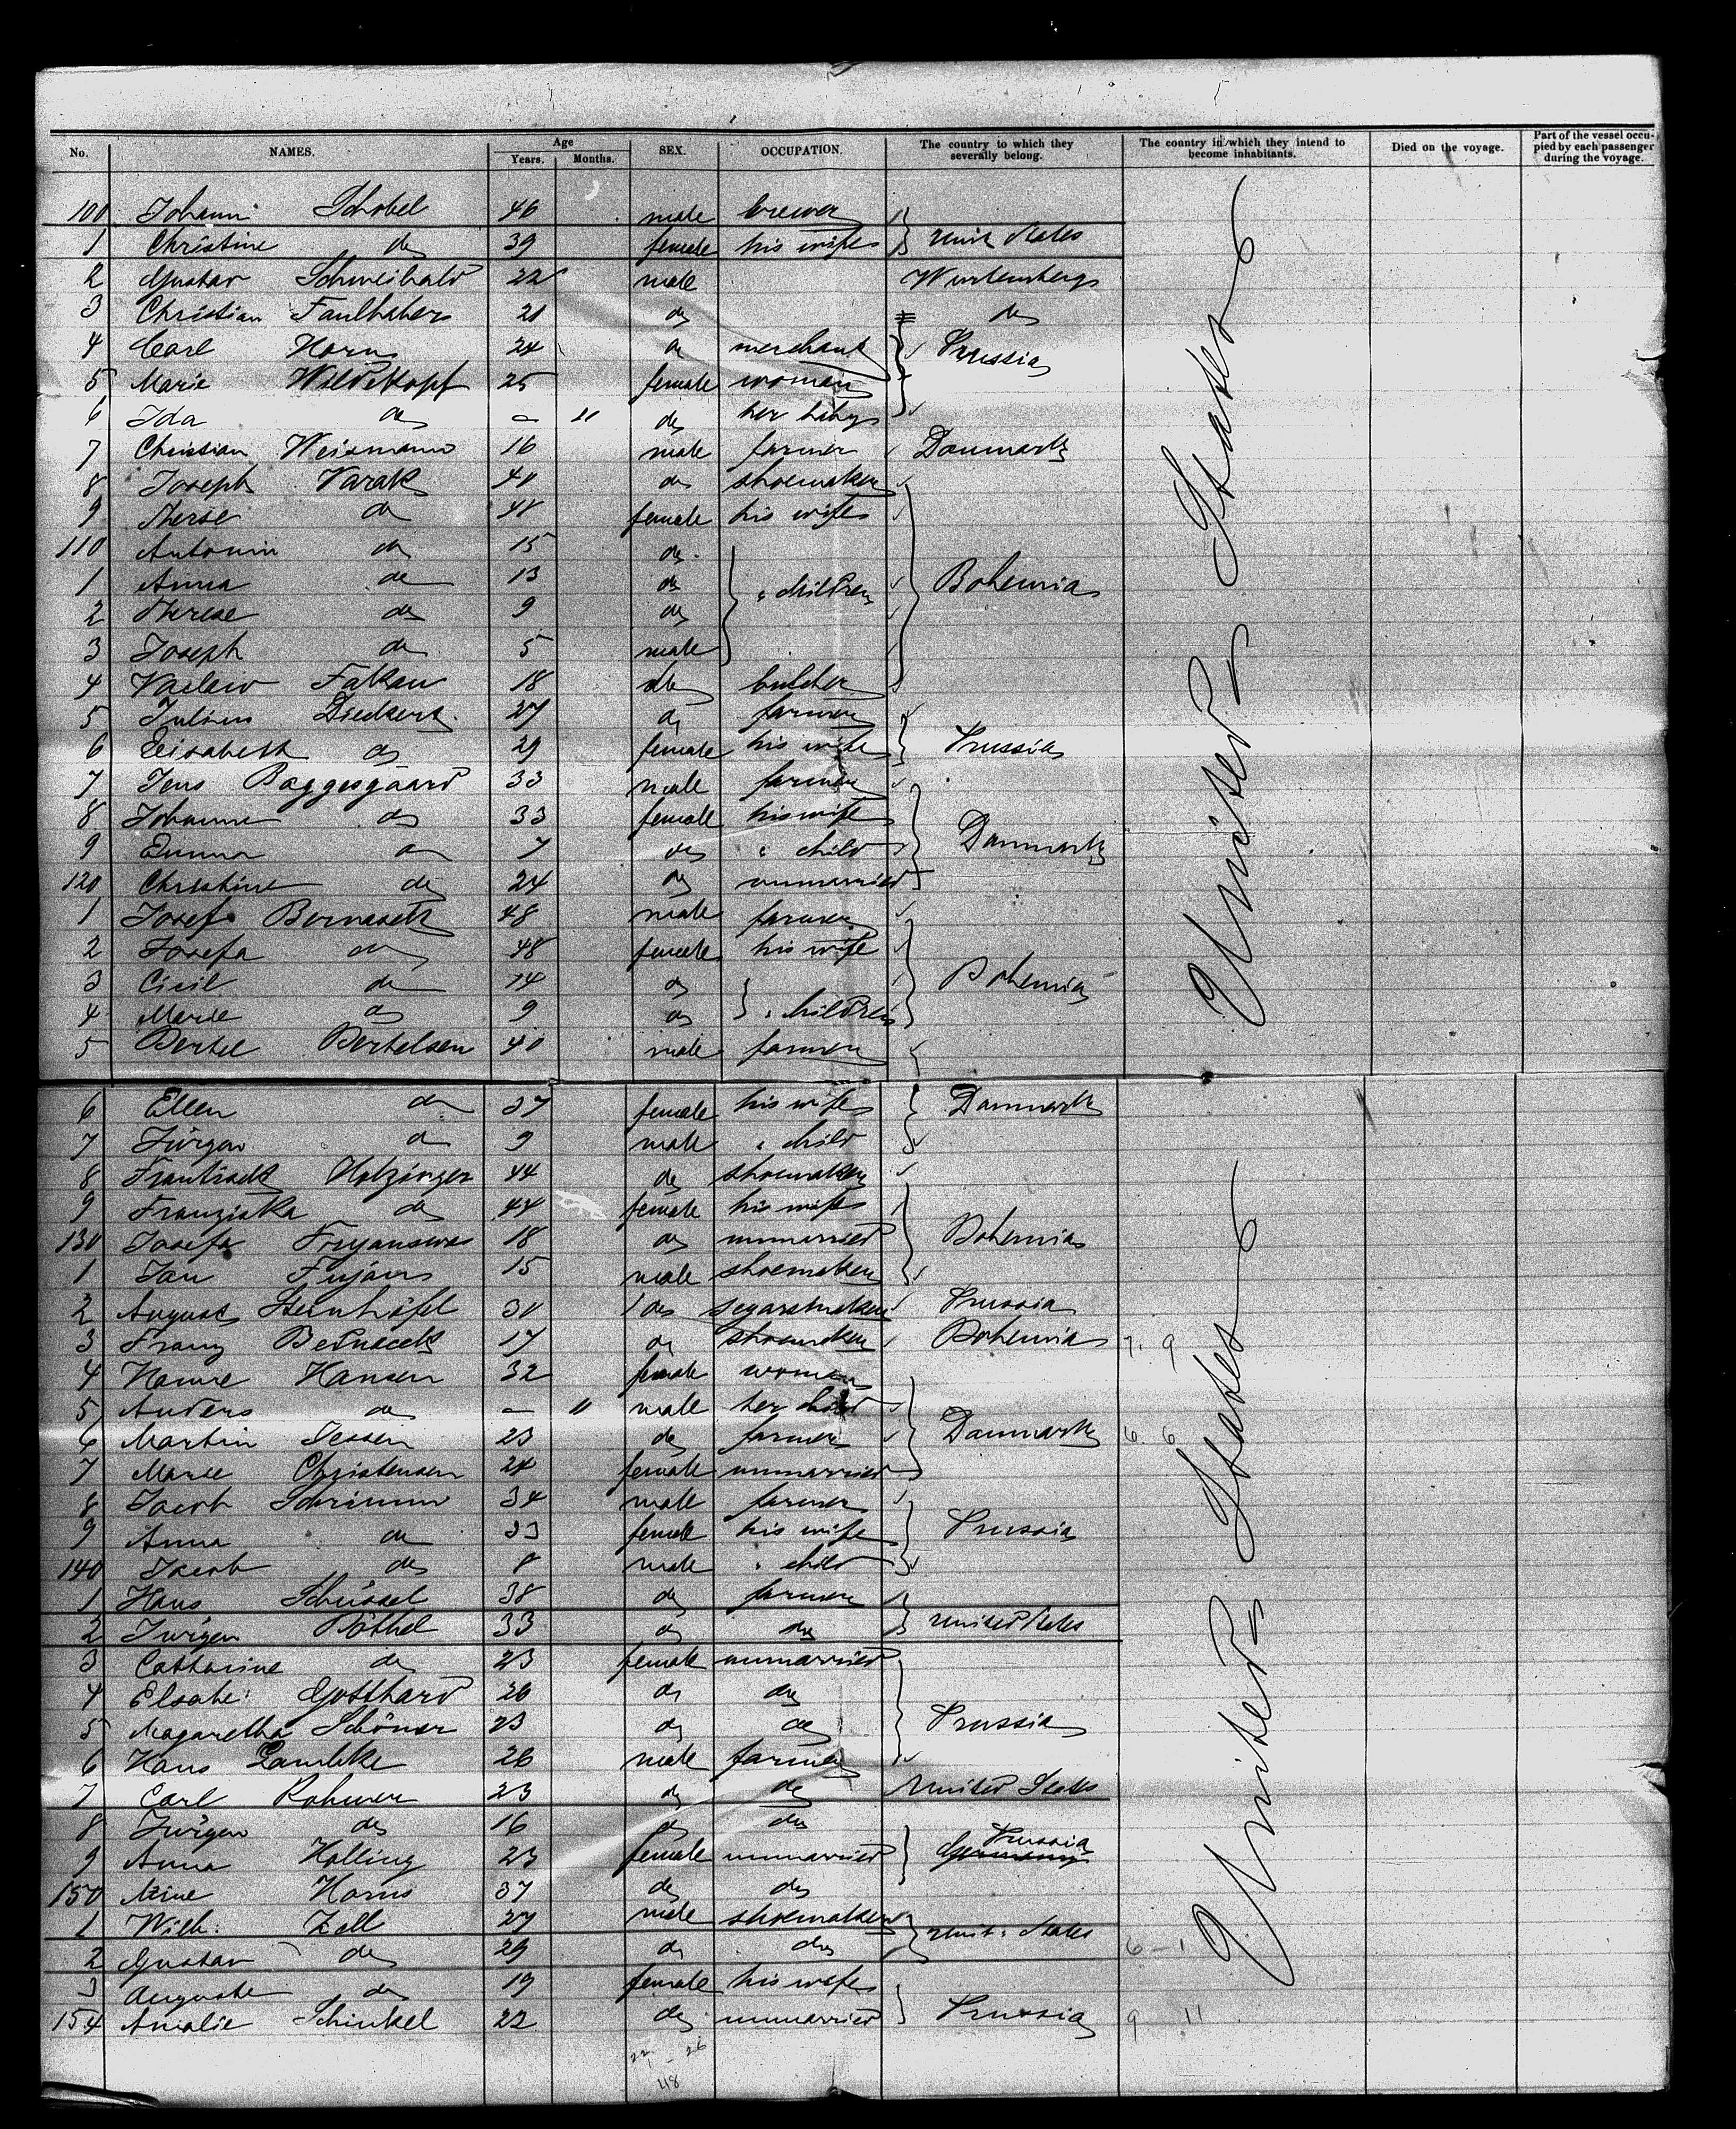 No. NAMES. Age Years. Months. SEX. OCCUPATION. The country to which they severally belong. The country in which they intend to become inhabitants. Died on the voyage. Part of the vessel occupied by each passenger during the voyage.
100 Johann Schobel 46 male brewer
1 Christine do 39 female his wife Unit States
2 Gustav Schweibald 22 male Wurtemberg
3 Christian Faulhaber 21 do do
4 Carl Horn 24 do merchant Prussia
5 Marie Wildekopf 25 female woman
6 Ida do — 11 do her baby
7 Christian Weismann 16 male farmer Danmark
8 Joseph Varak 40 do shoemaker
9 Therse do 48 female his wife
110 Antonin do 15 do
1 Anna do 13 do " children Bohemia
2 Therese do 9 do
3 Joseph do 5 male
4 Vaclaw 18 do butcher
5 Julius Dieckert 27 do farmer
6 Elisabeth do 29 female his wife Prussia
7 Jens Baggesgaard 33 male farmer
8 Johanne do 33 female his wife
9 Emma do 7 do " child Danmark
120 Christine do 24 do unmarried
1 Josef Bernaseck 48 male farmer
2 Josefa do 48 female his wife
3 Cicil do 14 do Bohemia
4 Marie do 9 do " children
5 Bertel Bertelsen 40 male farmer
United States
6 Ellen do 37 female his wife Danmark
7 Jürgen do 9 male " child
8 Holzinger 44 do shoemaker
9 Franziska do 44 female his wife
130 Josefa 18 do unmarried Bohemia
1 Jan 15 male shoemaker
2 August Steinhöfel 30 do segarsmaker Prussia
3 Franz Bernaceck 17 do shoemaker Bohemia 7. 9
4 Hanne Hansen 32 female woman
5 Anders do — 11 male her child
6 Martin Jessen 23 do farmer Danmark 6. 6
7 Marie Christensen 24 female unmarried
8 Jacob Schrimm 34 male farmer
9 Anna do 33 female his wife Prussia
140 Jacob do 8 male " child
1 Hans Schüssel 38 do farmer
2 Jürgen Röthel 33 do do United States
3 Catharine do 23 female unmarried
4 Elsabe: Gotthard 20 do do
5 Magaretha Schöner 23 do do Prussia
6 Hans Lambke 26 male farmer
7 Carl Rohwer 23 do do United States
8 Jürgen do 16 do do
9 Anna Holling 23 female unmarried Prussia Germany
150 Mine Horns 37 do do
1 Wilh: Zell 27 male shoemaker Unit: States
2 Gustav do 29 do do 6 – 1
3 Auguste do 19 female his wife
154 Amalie Schinkel 22 do unmarried Prussia 9 11
United States
22 – 26
48